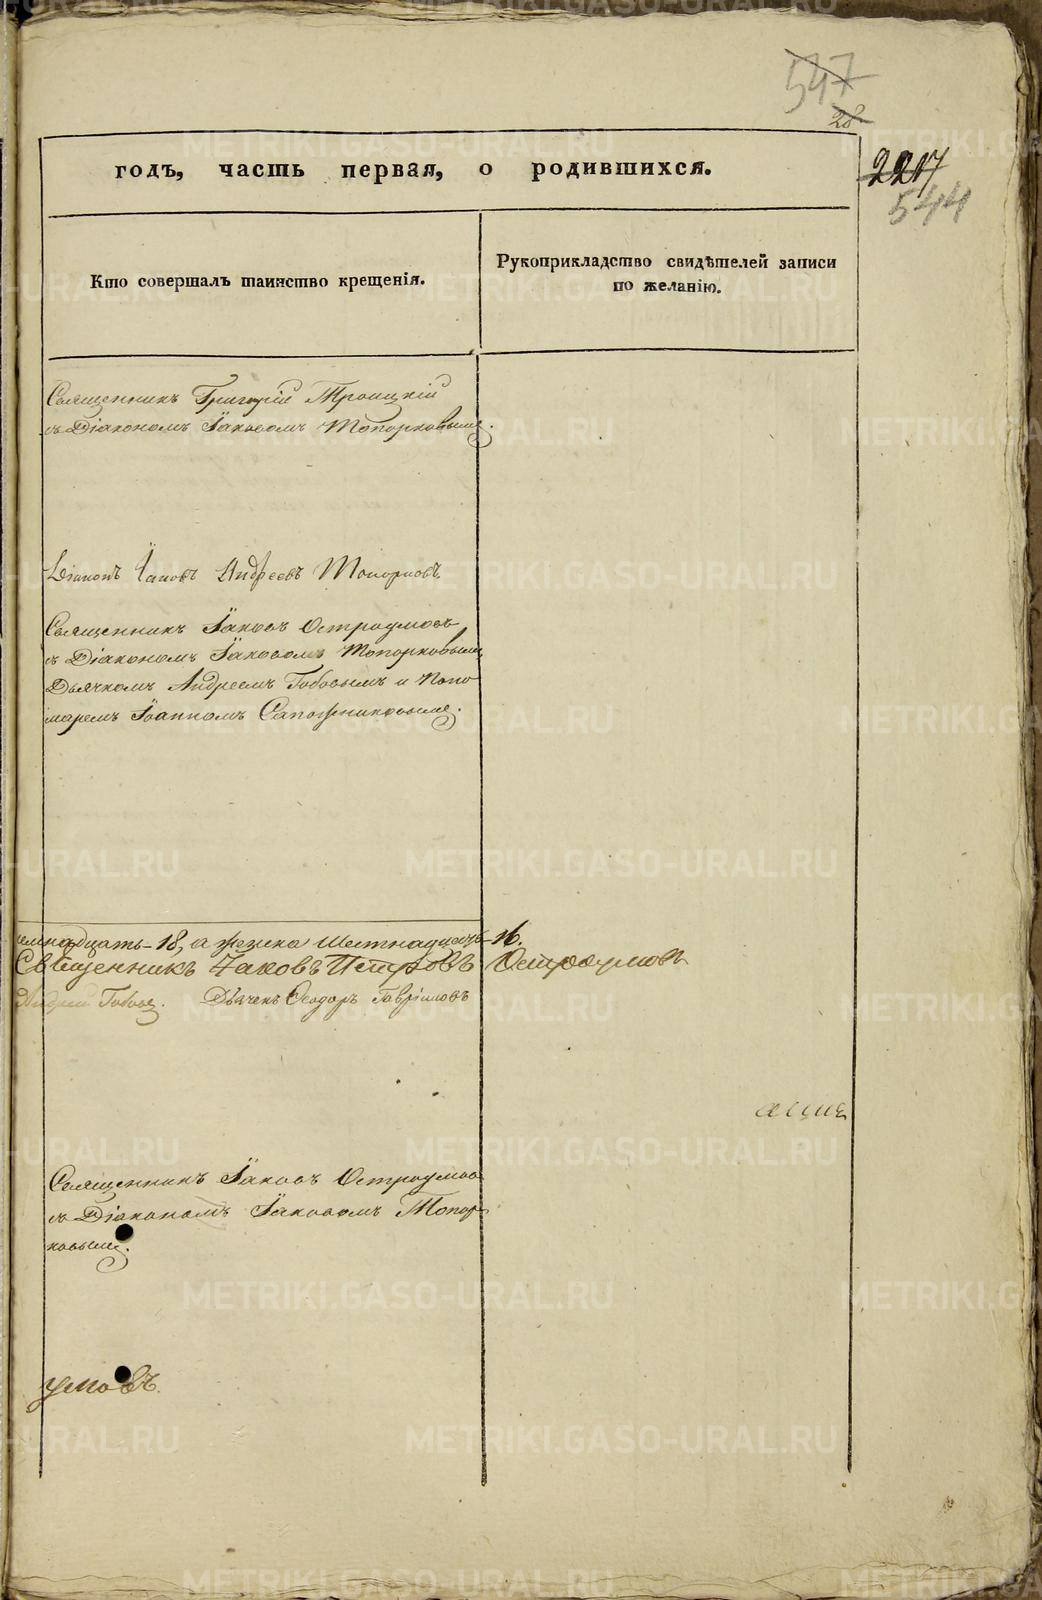 547
28
2217
544
годъ, часть первая, о родившихся.
Кто совершалъ таинство крещенія.
Рукоприкладство свидѣтелей записи
по желанію.
Священникъ Григорій Троицкій
съ Діакономъ Іаковомъ Топорковымъ.
Діаконъ Іаковъ Андреевъ Топорковъ
Священникъ Іаковъ Остроумовъ
съ Діакономъ Іаковомъ Топорковымъ,
Дьячкомъ Андреемъ Гобовымъ и Поно
марем Іоанномъ Сапожниковымъ.
емнадцать - 18, а женска Шестнадцать - 16.
Священникъ Іаковъ Петровъ Остроумовъ
Андрей Гобовъ. Дьячекъ Ѳеодоръ Гавриловъ
Священникъ Іаковъ Остроумов
съ Діакономъ Іаковомъ Топор
ковымъ.
умовъ.
METRIKI.GASO-URAL.RU